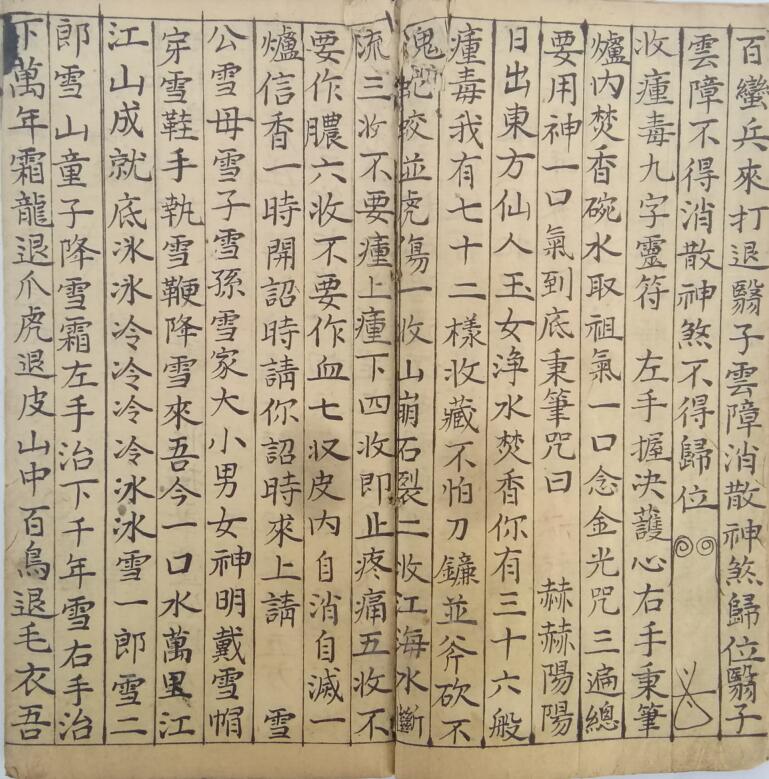 百蠻兵來打退翳子雲障消散神煞歸位翳子
雲障不得消散神煞不得歸位
收瘇毒九字靈符 左手握決護心右手秉筆
爐內焚香碗水取祖氣一口念金光咒三遍總
要用神一口氣到底秉筆咒曰 赫赫陽陽
日出東方仙人玉女浄水焚香你有三十六般
瘇毒我有七十二樣收藏不怕刀鐮並斧砍不
蛇咬並虎傷一收山崩石裂二收江海水斷
流三收不要瘇上瘇下四收即止疼痛五收不
要作膿六收不要作血七収皮內自消自滅一
爐信香一時開詔時請你詔時求上請 雪
公雪母雪子雪孫雪家大小男女神明戴雪帽
穿雪鞋手執雪鞭降雪來吾今一口水萬里江
江山成就底氷氷冷冷冷冷冰冰雪一郎雪二
郎雪山童子降雪霜左手治下千年雪右手治
下萬年霜龍退爪虎退皮山中百鳥退毛衣吾